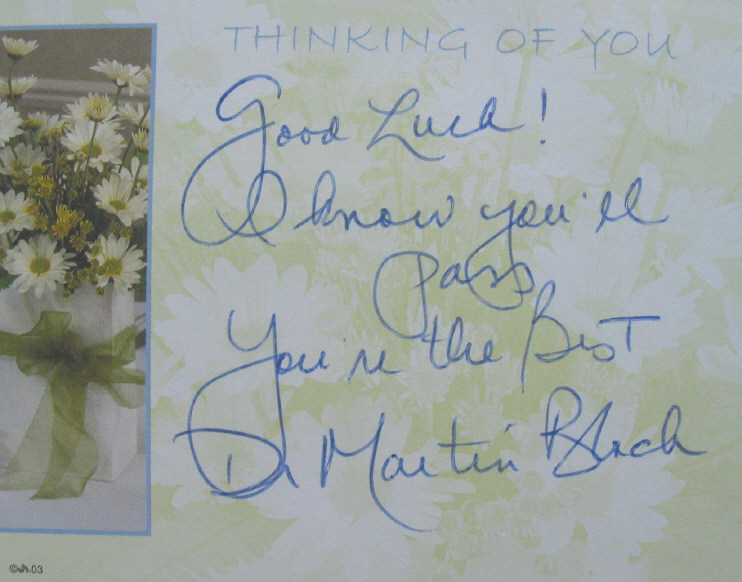 THINKING OF YOU
Good Luck!
I know you'll
pass
You're the Best
Dr Martin
03